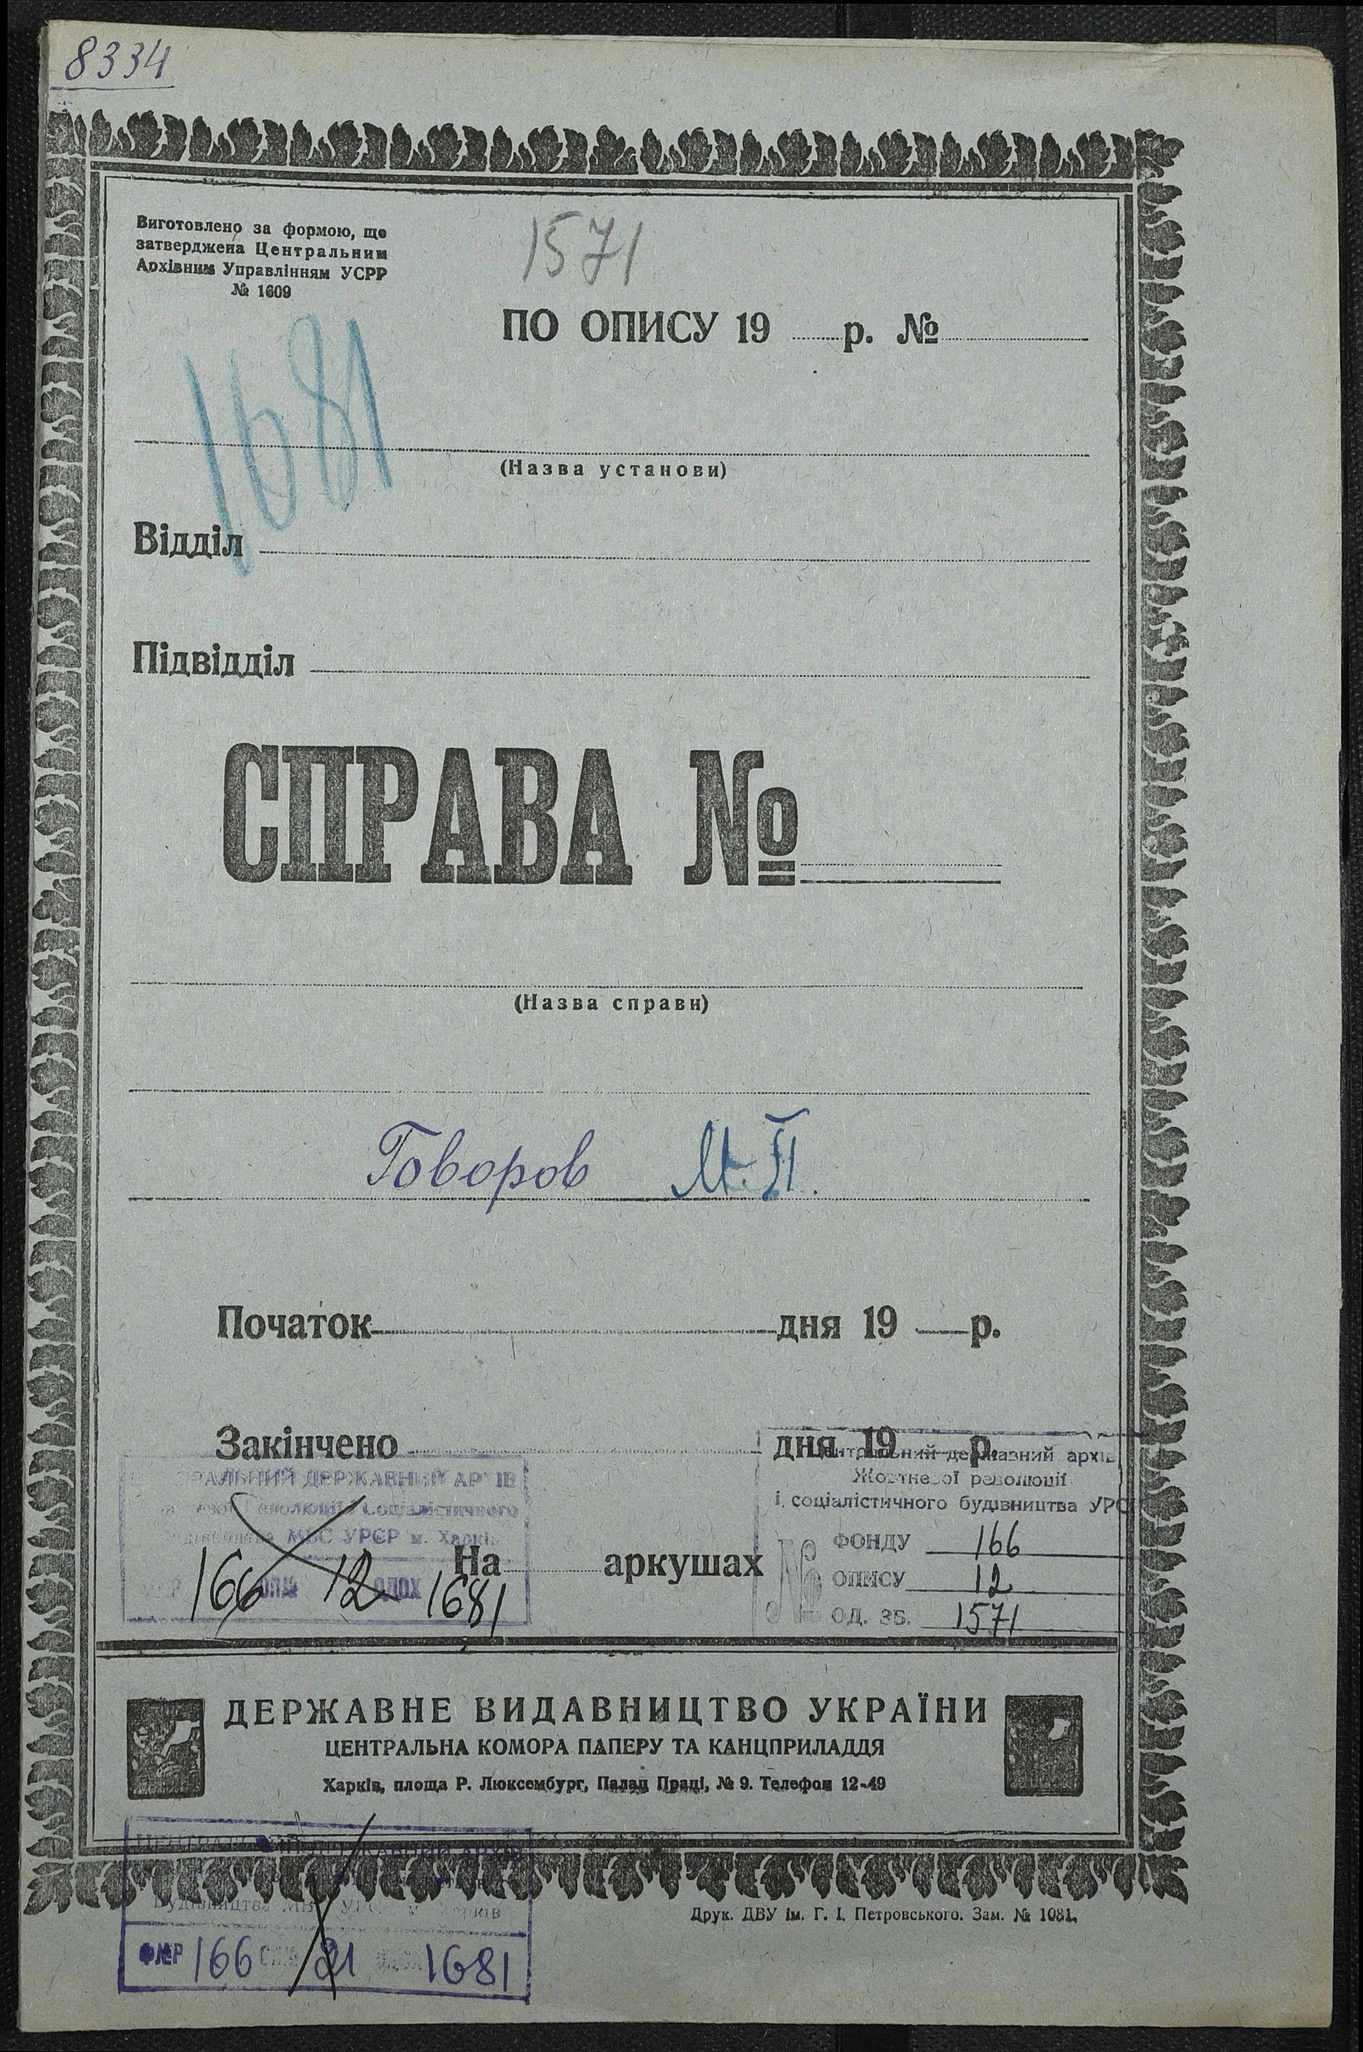 8334
Виготовлено за формою, що
затверджена Центральним
Архівним Управлінням УСРР
№ 1609
1571
ПО ОПИСУ 19 р. №
1681
(Назва установи)
Відділ
Підвідділ
СПРАВА №
(Назва справи)
Говоров М.П.
Початок дня 19 р.
Закінчено дня 19 р.
На аркушах
ДЕРЖАВНИЙ
Соціалістичного
МВС УРСР м.
166 12 1681
Центральний державний архів
Жовтневої революції
і соціалістичного будівництва УРСР
№
ФОНДУ 166
ОПИСУ 12
ОД. ЗБ. 1571
ДЕРЖАВНЕ ВИДАВНИЦТВО УКРАЇНИ
ЦЕНТРАЛЬНА КОМОРА ПАПЕРУ ТА КАНЦПРИЛАДДЯ
Харків, площа Р. Люксембург, Палац Праці, № 9. Телефон 12-49
Друк. ДВУ ім. Г. І. Петровського. Зам. № 1081.
Будівництва
166 1681